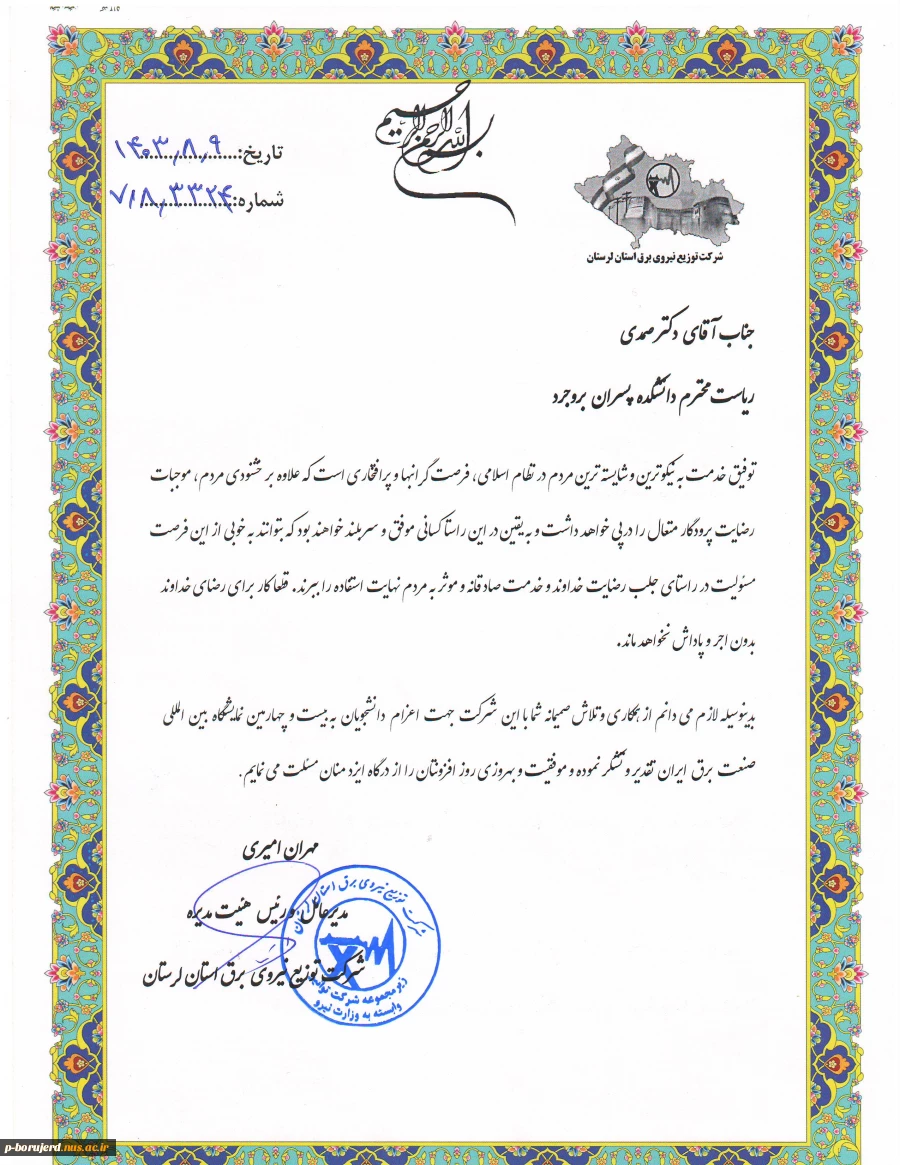 بسم الله الرحمن الرحیم
تاریخ: ۱۴۰۳/۸/۹
شماره: ۷/۸/۳۳۲۴
شرکت توزیع نیروی برق استان لرستان
جناب آقای دکتر صمدی
ریاست محترم دانشکده پسران بروجرد
توفیق خدمت به نیکوترین و شایسته ترین مردم در نظام اسلامی، فرصت گرانبها و پرافتخاری است که علاوه بر خشنودی مردم، موجبات
رضایت پرودگار متعال را در پی خواهد داشت و به یقین در این راستا کسانی موفق و سربلند خواهند بود که بتوانند به خوبی از این فرصت
مسئولیت در راستای جلب رضایت خداوند و خدمت صادقانه و موثر به مردم نهایت استفاده را ببرند. قطعا کار برای رضای خداوند
بدون اجر و پاداش نخواهد ماند.
بدینوسیله لازم می دانم از همکاری و تلاش صمیمانه شما با این شرکت جهت اعزام دانشجویان به بیست و چهارمین نمایشگاه بین المللی
صنعت برق ایران تقدیر و تشکر نموده و موفقیت و بهروزی روز افزونتان را از درگاه ایزد منان مسئلت می نمایم.
مهران امیری
مدیرعامل و رئیس هئیت مدیره
شرکت توزیع نیروی برق استان لرستان
شرکت توزیع نیروی برق استان
زیر مجموعه شرکت توانیر
وابسته به وزارت نیرو
p-borujerd.nus.ac.ir